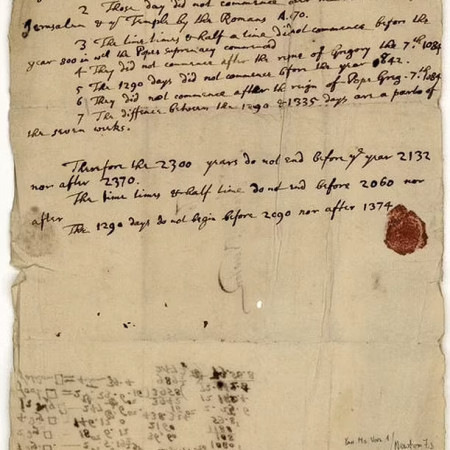 2 Those day did not commence
Jerusalem & ye Temple by the Romans A.70.
3 The time times & half a time did not commence before the
year 800 in wch the Popes supremacy commenced
4 They did not commence after the reigne of Gregory the 7th. 1084
5 The 1290 days did not commence before the year 842.
6 They did not commence after the reigne of Pope Greg. 7th. 1084
7 The diffence between the 1290 & 1335 days are a parts of
the seven weeks.
Therefore the 2300 years do not end before ye year 2132
nor after 2370.
The time times & half time do not end before 2060 nor
after
The 1290 days do not begin before 2090 nor after 1374
Yah. Ms. Var. 1/
Newton 7.3